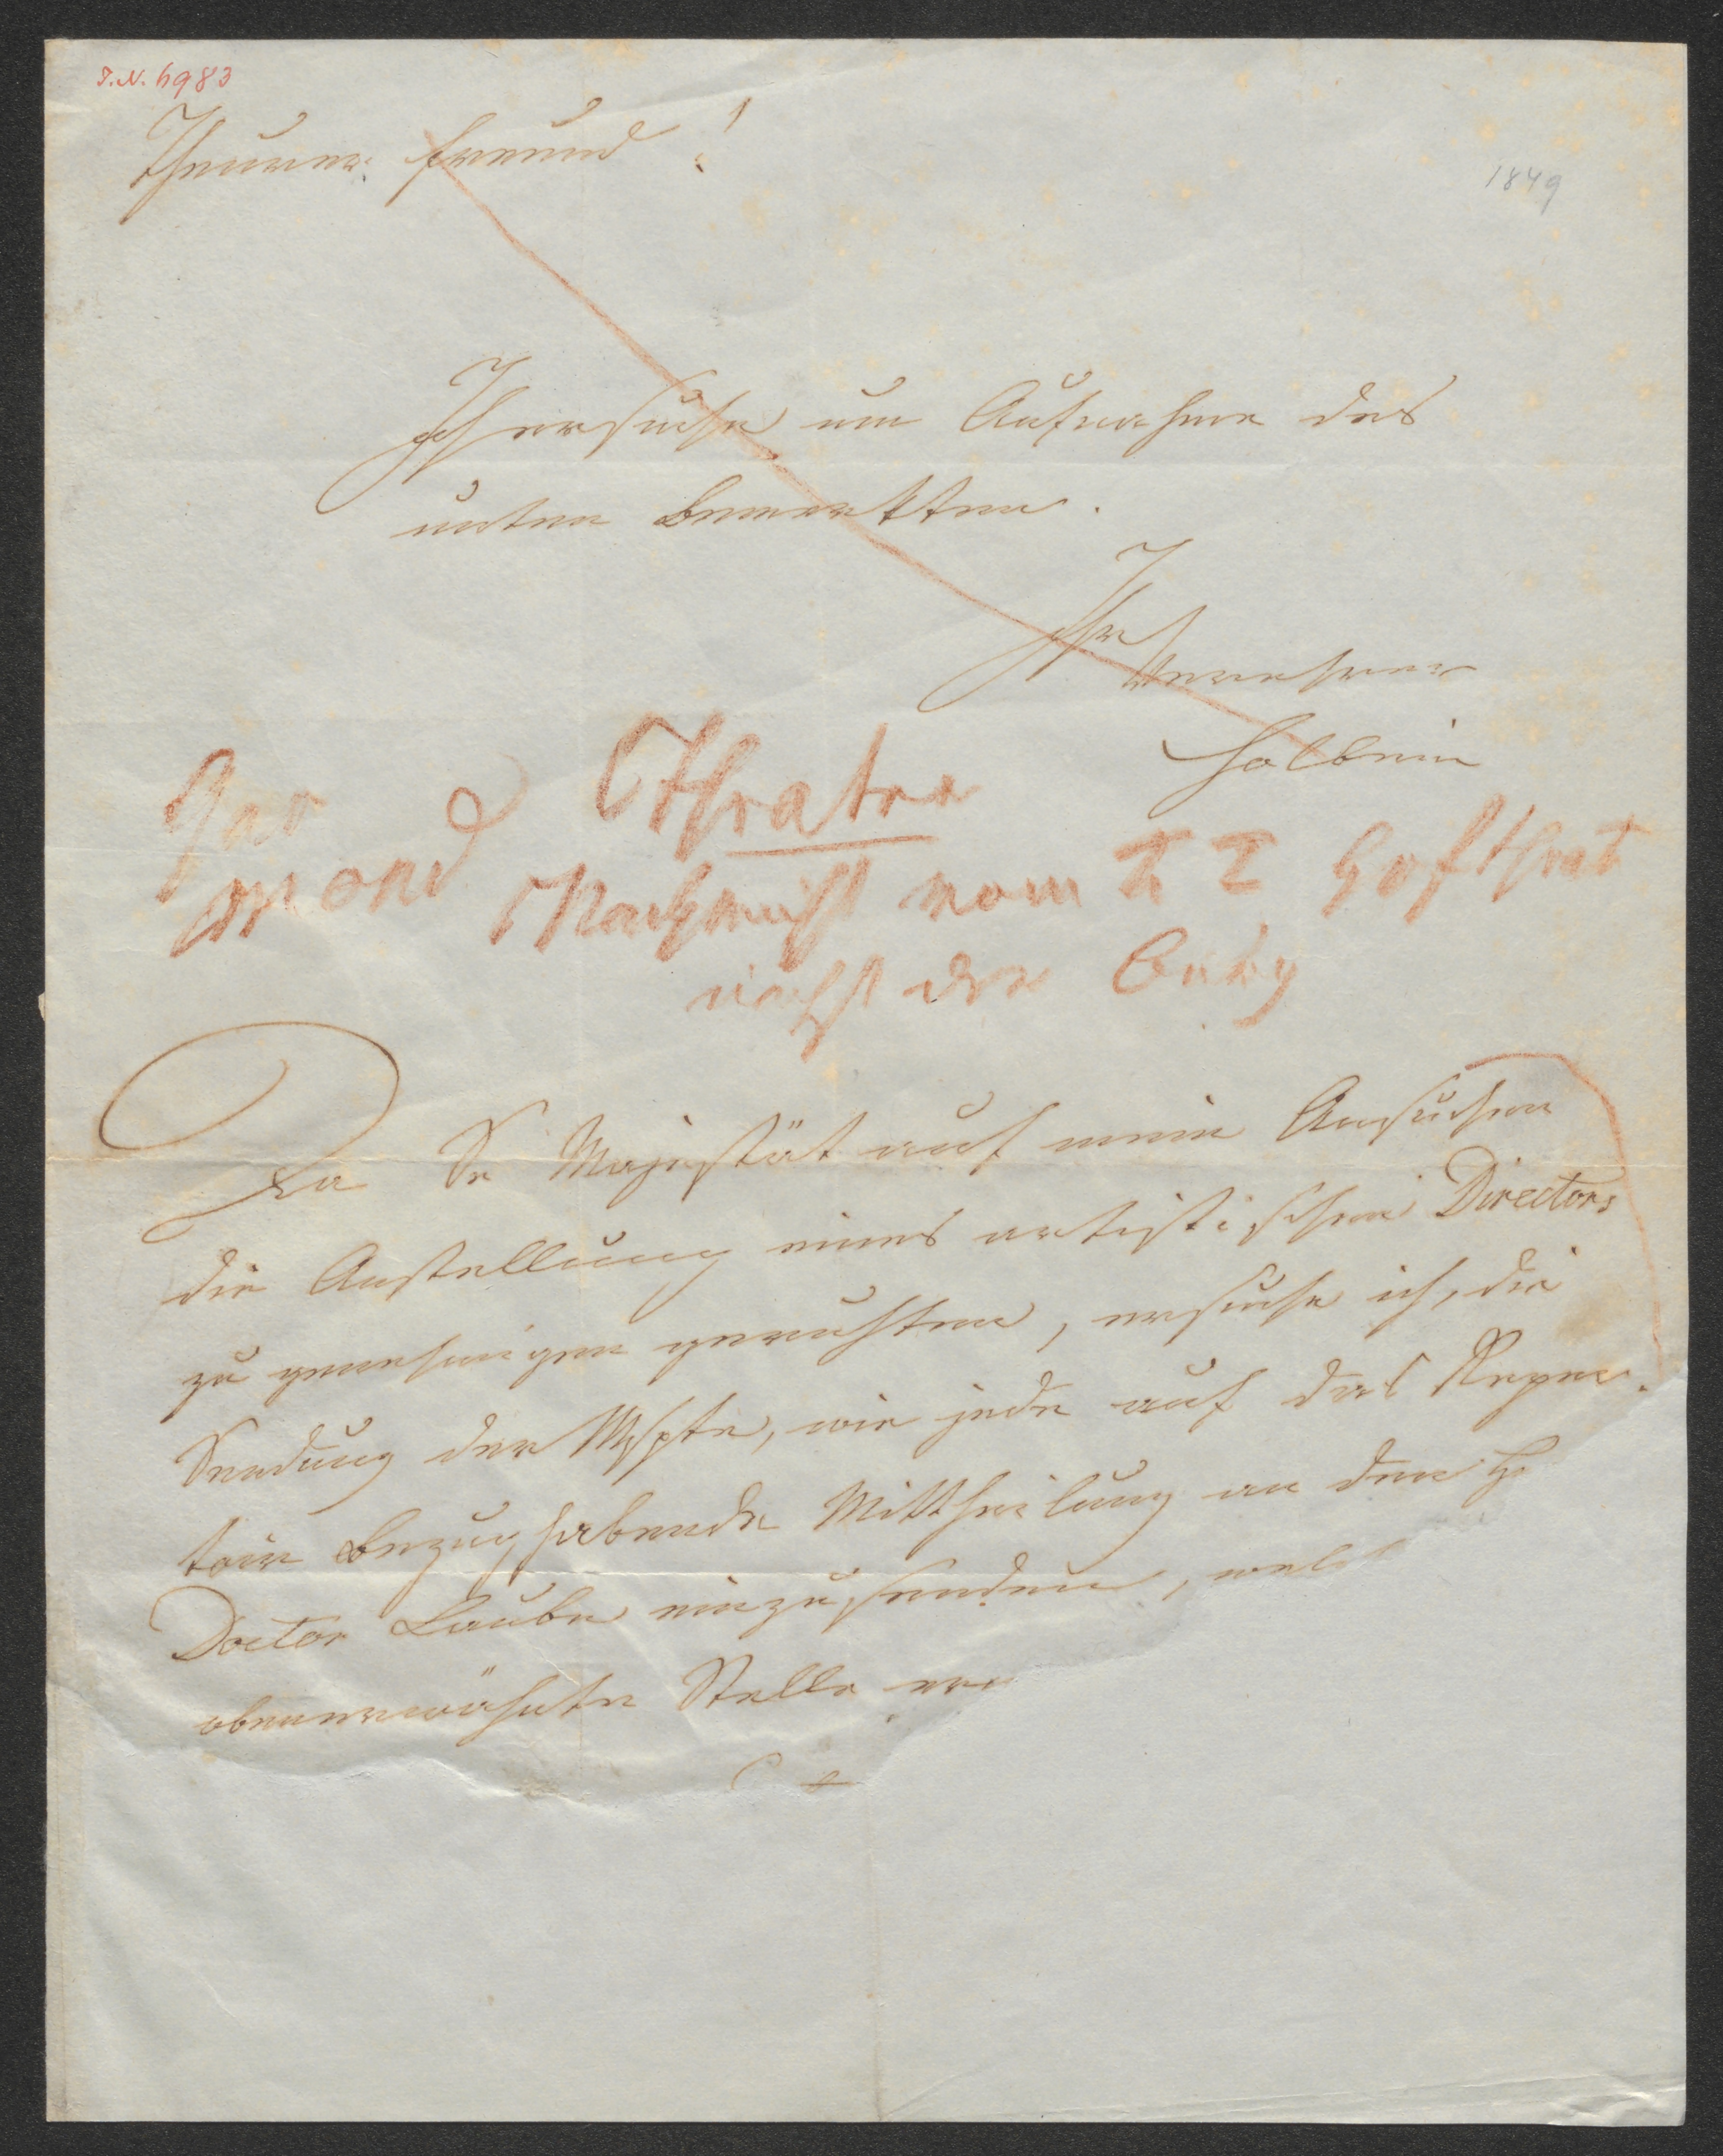 I.N. 6983
1849
Theurer Freund!
Ich ersuche um Aufnahme des
unten bemerkten.
Ihr
Verehrer
Holbein
Theater
Garmond
Nachricht vom K K Hoftheat
nächst der Burg
Da Se Majestät auf mein Ansuchen
die Anstellung eines artistischen Directors
zu genehmigen geruhten, ersuche ich, die
Sendung der Mspte, wie jede auf das Reper-
toir Bezug habende Mittheilung an den H
Doctor Laube einzusenden, welch
obenerwähnte Stelle